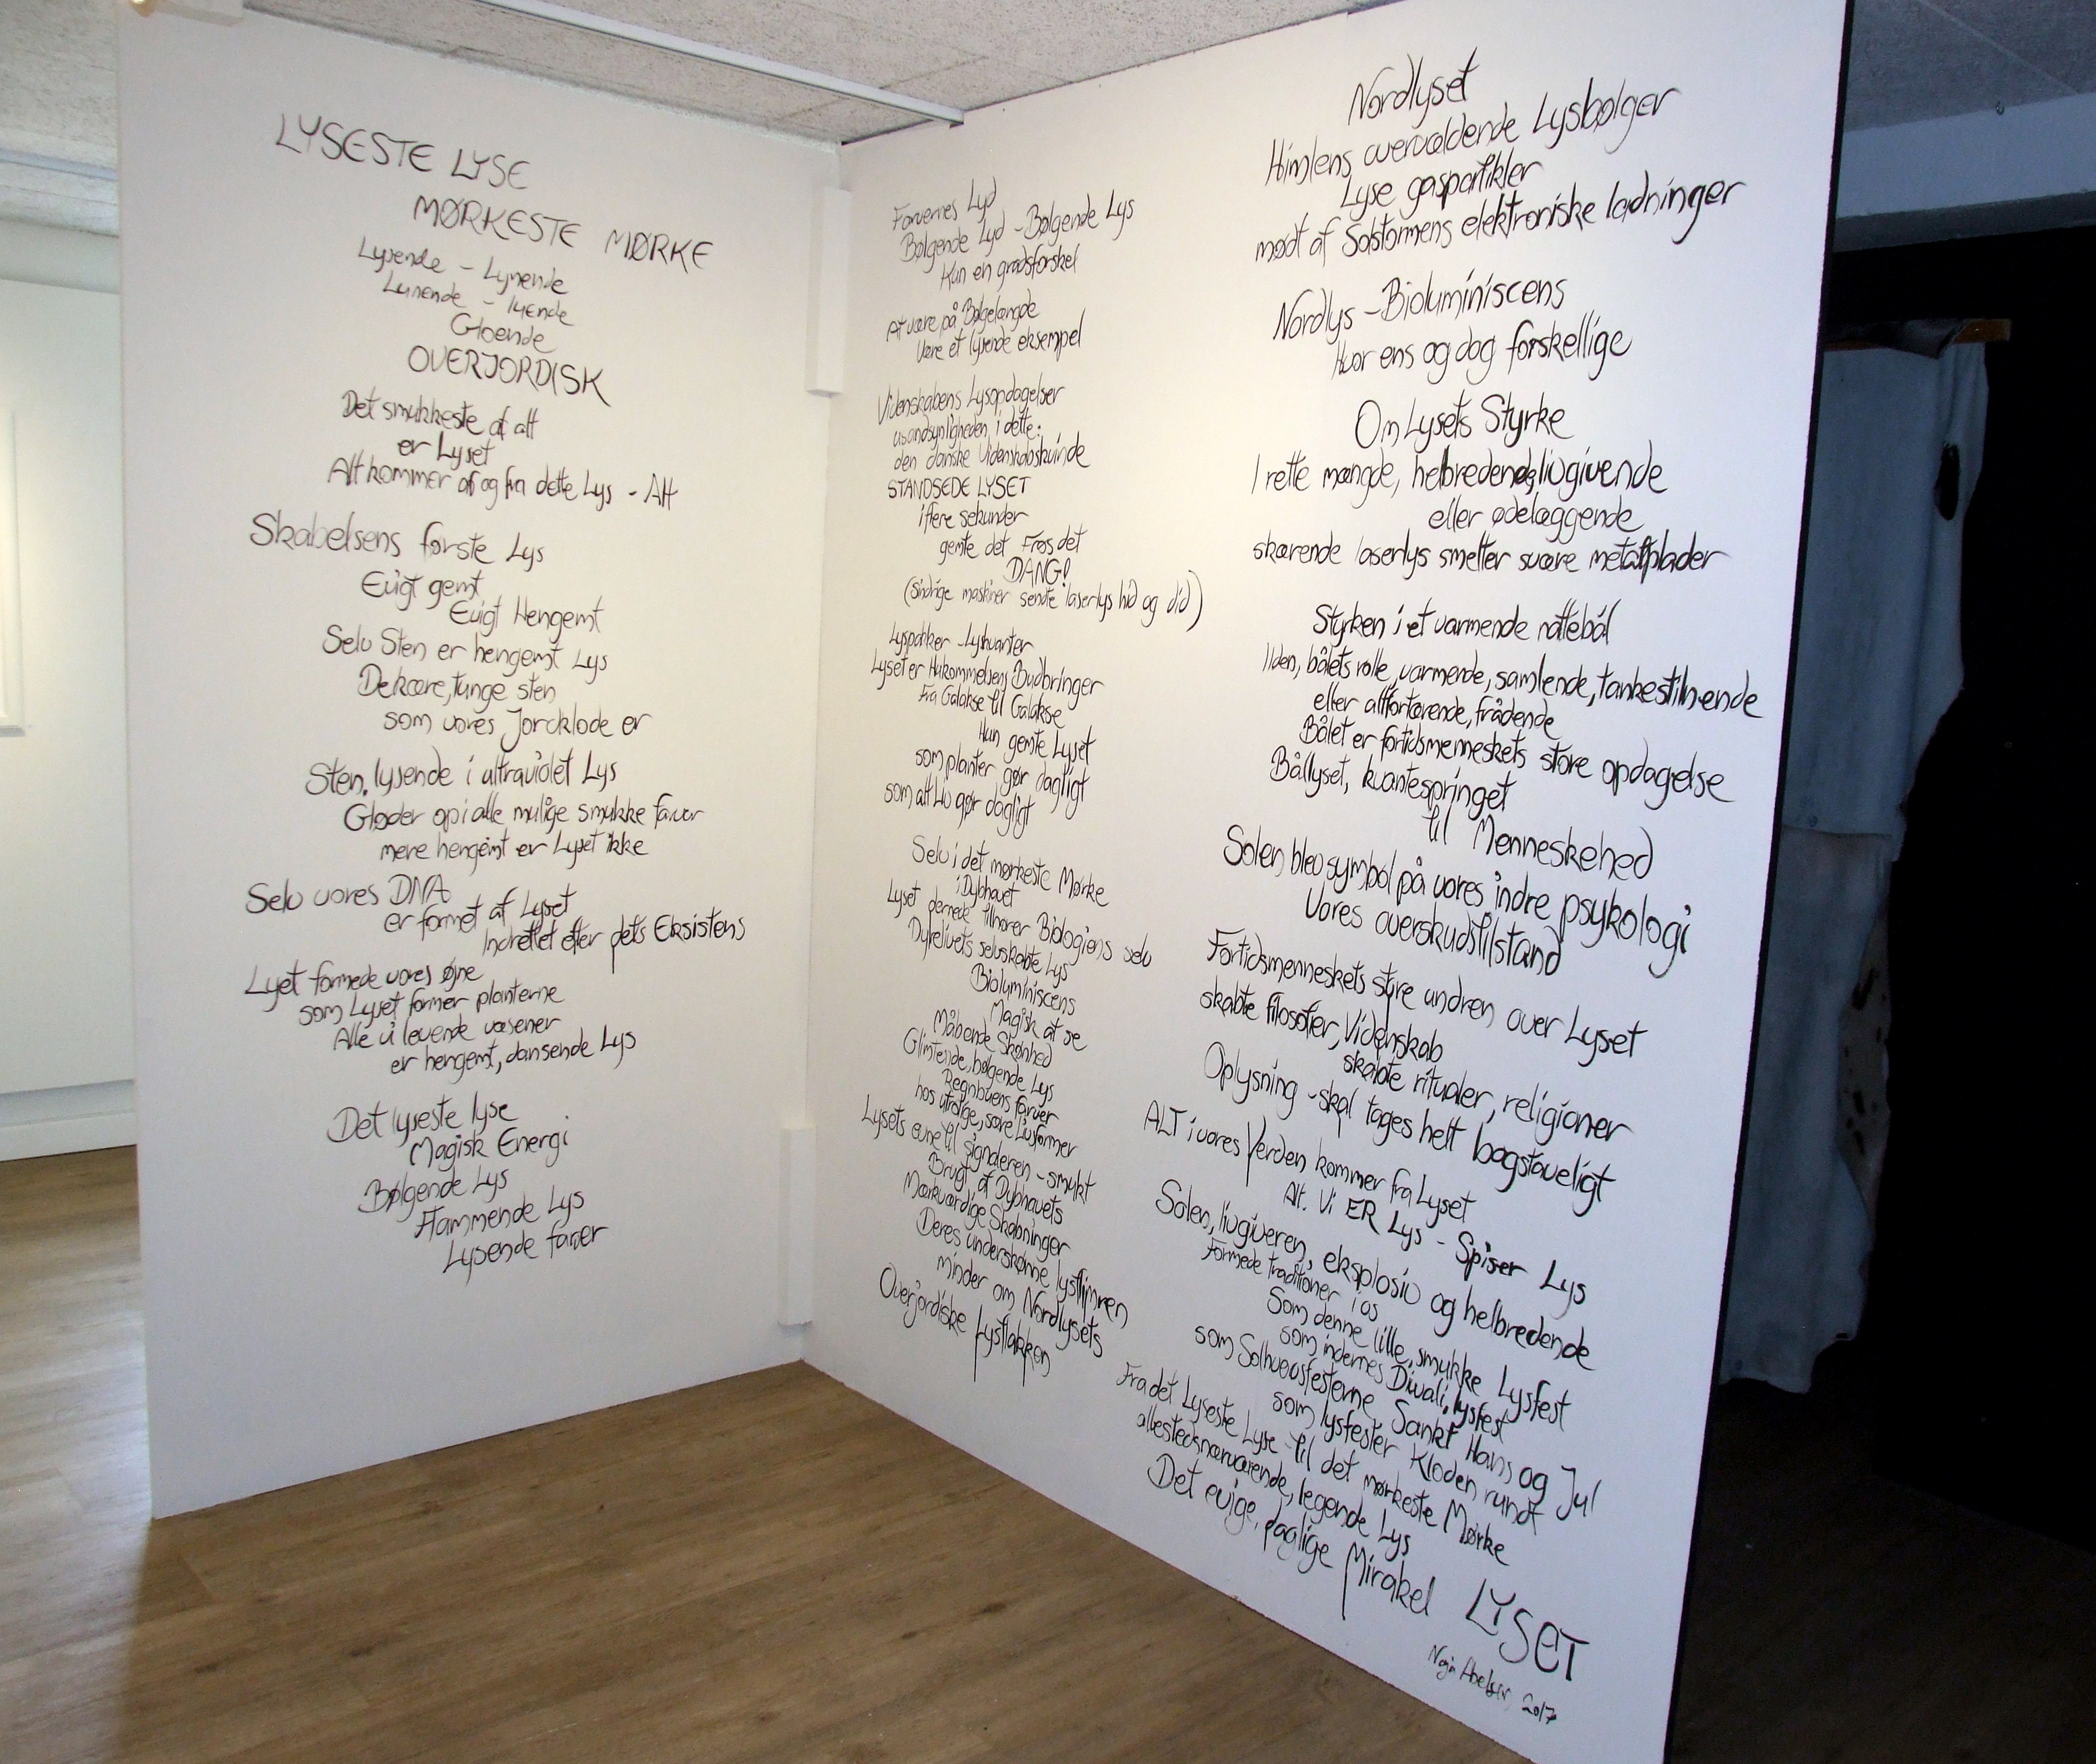 LYSESTE LYSE
MØRKESTE MØRKE
Lysende - Lynende
Lunende - lyende
Gloende
OVERJORDISK
Det smukkeste af alt
er Lyset
Alt kommer af og fra dette Lys - Alt
Skabelsens første Lys
Evigt gemt
Evigt Hengemt
Selv Sten er hengemt Lys
De kære, tunge sten
som vores Jordklode er
Sten, lysende i ultraviolet Lys
Gløder op i alle mulige smukke farver
mere hengemt er Lyset ikke
Selv vores DNA
er formet af Lyset
Indrettet efter dets Eksistens
Lyset formede vores øjne
som Lyset former planterne
Alle vi levende væsener
er hengemt, dansende Lys
Det lyseste lyse
Magisk Energi
Bølgende Lys
Flammende Lys
Lysende farver
Farvernes Lyd
Bølgende Lyd - Bølgende Lys
Kun en gradsforskel
At være på Bølgelængde
Være et lysende eksempel
Videnskabens Lysopdagelser
usandsynligheden i dette:
den danske Videnskabskvinde
STANDSEDE LYSET
i flere sekunder
gemte det Frøs det
DANG!
(Sindrige maskiner sendte laserlys hid og did)
Lyspakker - Lyskvanter
Lyset er Hukommelsens Budbringer
Fra Galakse til Galakse
Hun gemte Lyset
som planter gør dagligt
som alt Liv gør dagligt
Selv i det mørkeste Mørke
i Dybhavet
Lyset dernede tilhører Biologiens selv
Dyrelivets selvskabte Lys
Bioluminiscens
Magisk at se
Måbende Skønhed
Glimtende, bølgende Lys
Regnbuens farver
hos utrolige, sære Livsformer
Lysets evne til signaleren - smukt
Brugt af Dybhavets
Mærkværdige Skabninger
Deres underskønne lysflimren
minder om Nordlysets
Overjordiske Lysflakken
Nordlyset
Himlens overvældende Lysbølger
Lyse gaspartikler
mødt af Solstormens elektroniske ladninger
Nordlys - Bioluminiscens
Hvor ens og dog forskellige
Om Lysets Styrke
I rette mængde, helbredende, livgivende
eller ødelæggende
skærende laserlys smelter svære metalplader
Styrken i et varmende nattebål
Ilden, bålets rolle, varmende, samlende, tankestilnende
eller altfortærende, frådende
Bålet er fortidsmenneskets store opdagelse
Bållyset, kvantespringet
til Menneskehed
Solen blev symbol på vores indre psykologi
Vores overskudstilstand
Fortidsmenneskets styre undren over Lyset
skabte filosofier, Videnskab
skabte ritualer, religioner
Oplysning - skal tages helt bogstaveligt
ALT i vores Verden kommer fra Lyset
Alt. Vi ER Lys - Spiser Lys
Solen, livgiveren, eksplosiv og helbredende
Formede traditioner i os
Som denne lille, smukke Lysfest
som indernes Diwali, lysfest
som Solhvervsfesterne Sankt Hans og Jul
som lysfester Kloden rundt
Fra det Lyseste Lyse til det mørkeste Mørke
allestedsnærværende, legende Lys
Det evige, daglige Mirakel
LYSET
2017